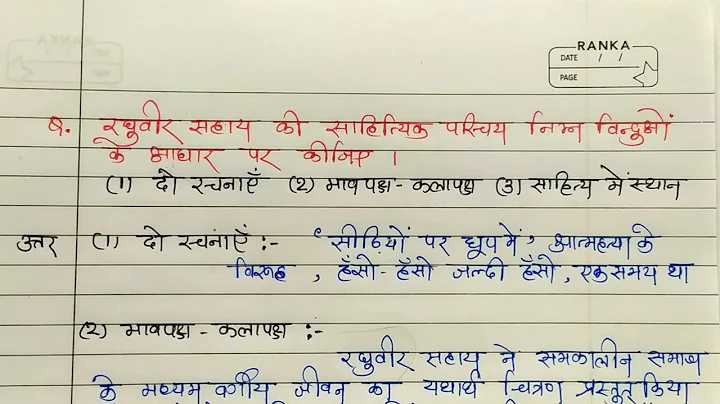 RANKA
DATE / /
PAGE
प्र. रघुवीर सहाय का साहित्यिक परिचय निम्न विन्दुओं
के आधार पर कीजिए ।
(1) दो रचनाएँ (2) भावपक्ष - कलापक्ष (3) साहित्य में स्थान
उत्तर (1) दो रचनाएँ :- 'सीढ़ियों पर धूप में', आत्महत्या के
विरूद्ध , हँसो - हँसो जल्दी हँसो, एक समय था
(2) भावपक्ष - कलापक्ष :-
रघुवीर सहाय ने समकालीन समाज
के मध्यम वर्गीय जीवन का यथार्थ चित्रण प्रस्तुत किया